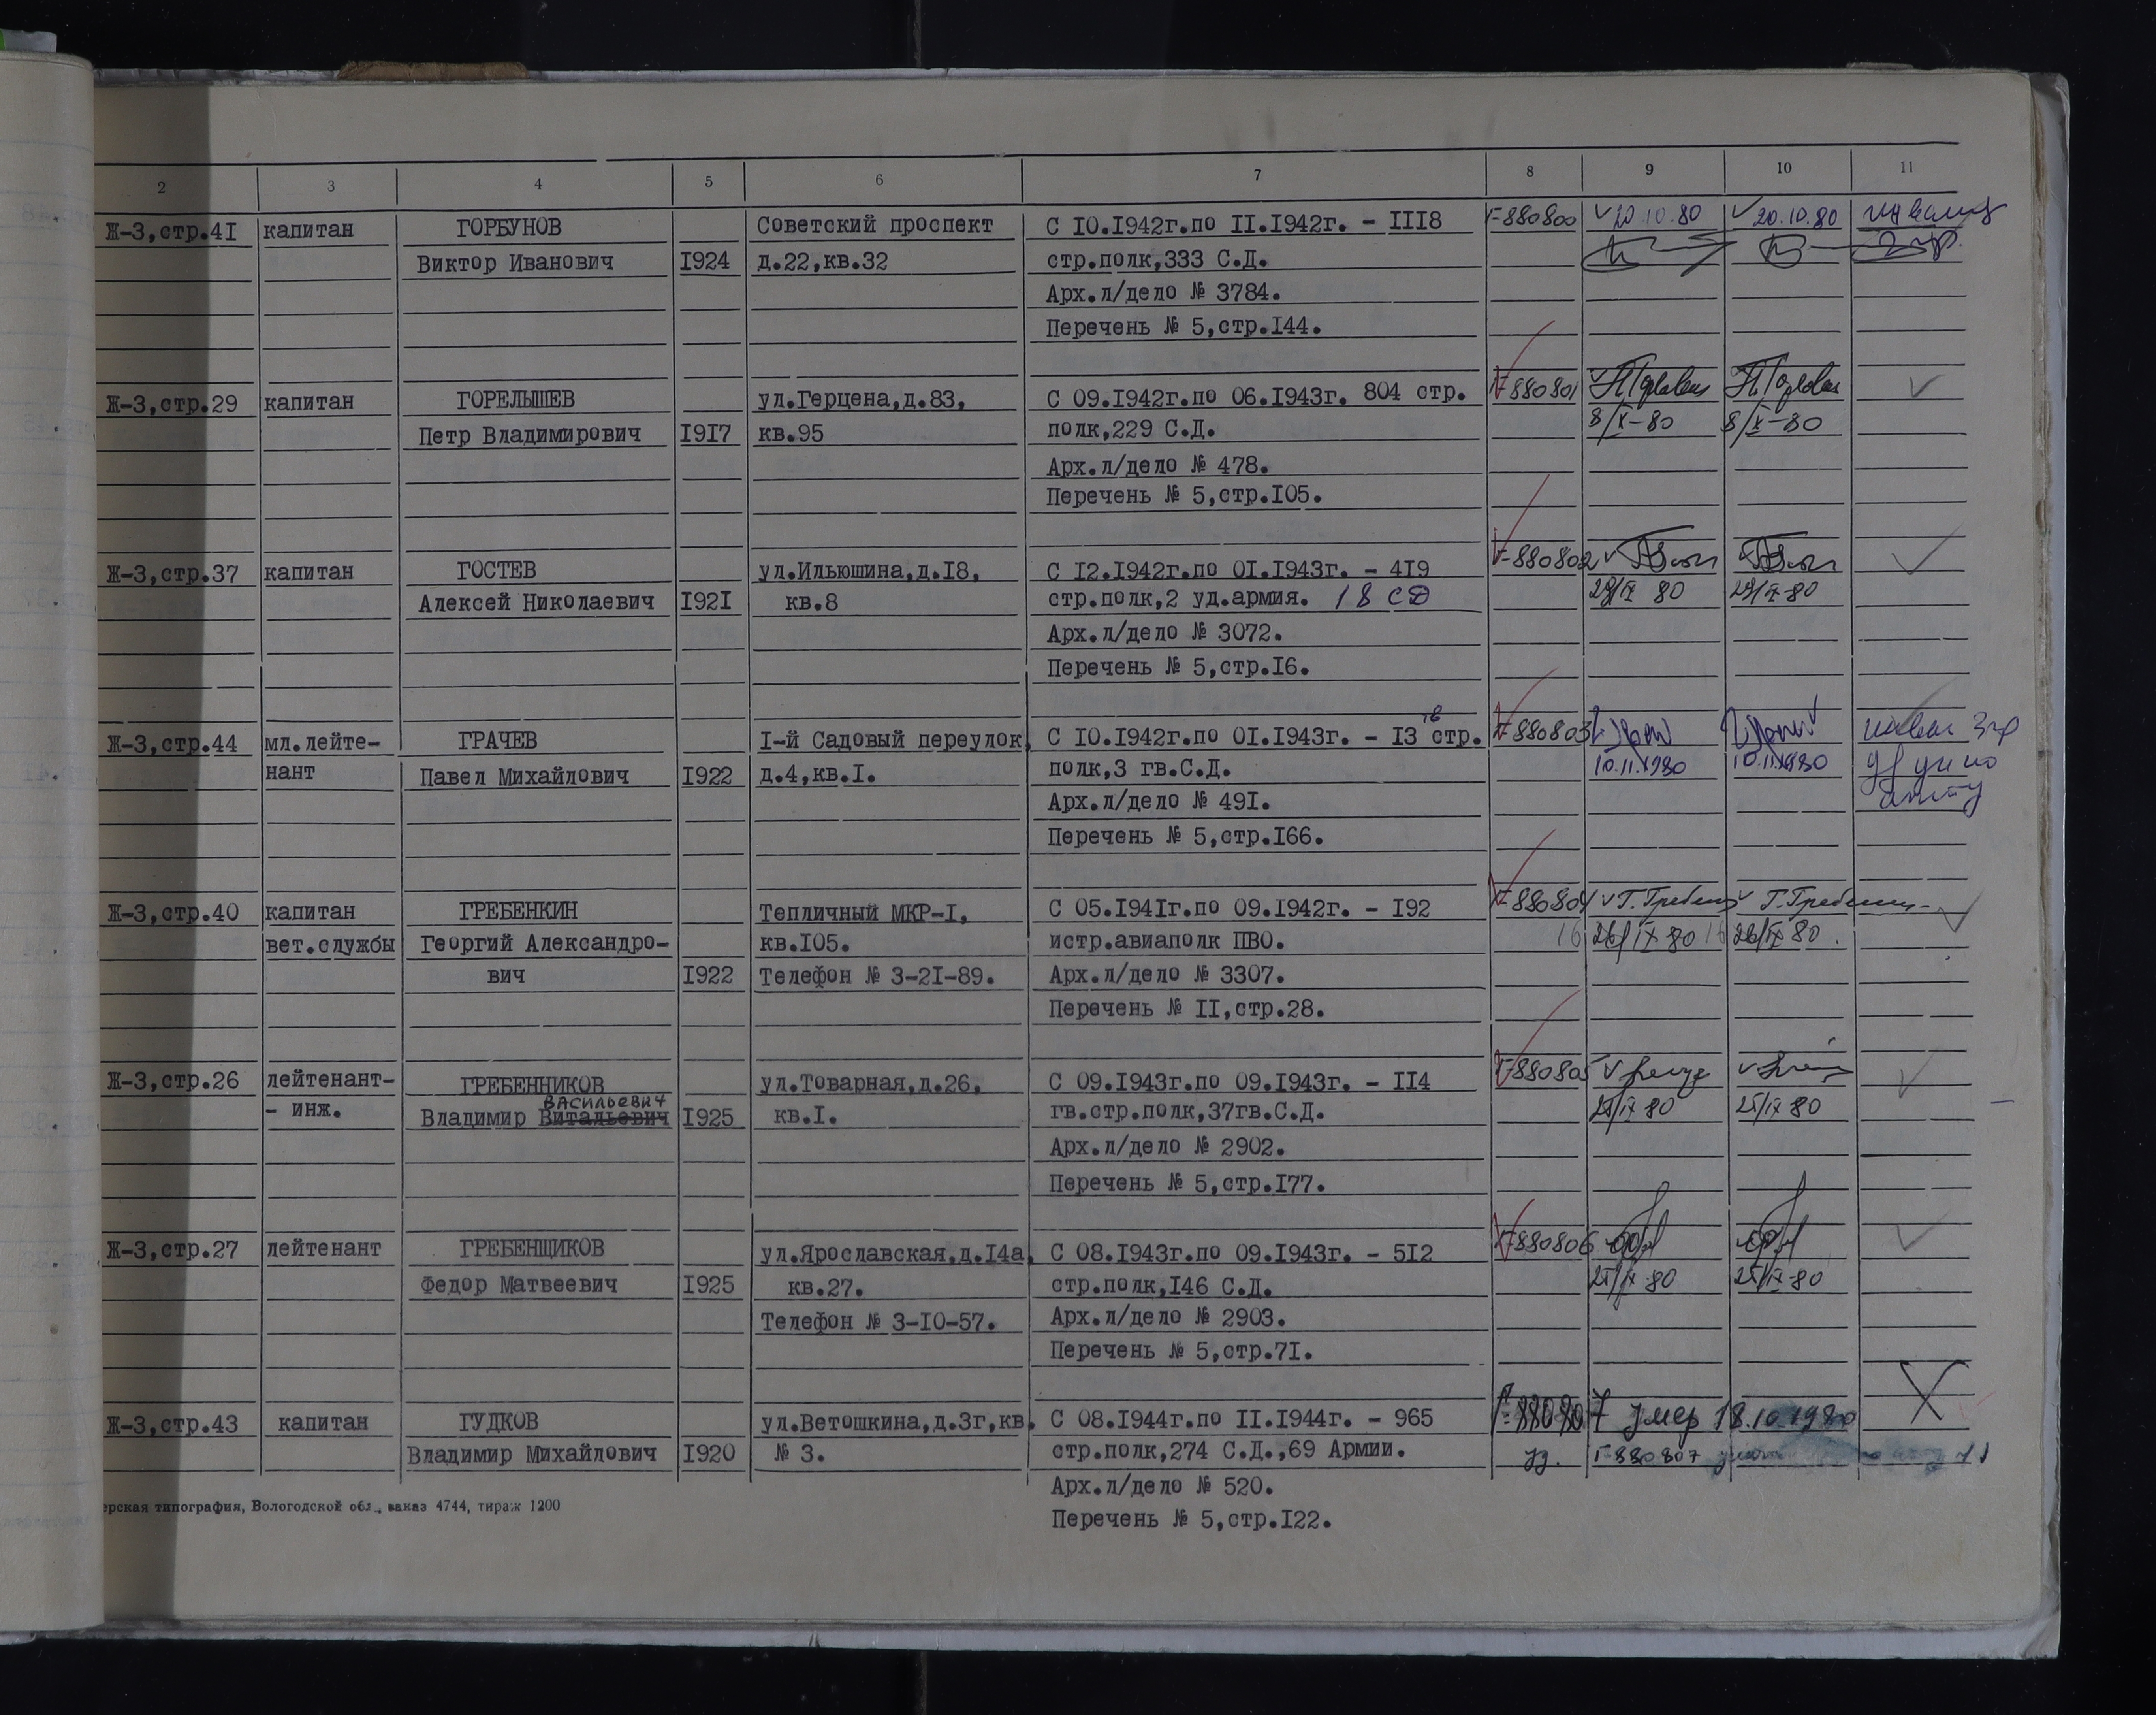 2 3 4 5 6 7 8 9 10 11
Ж-3,стр.4I капитан ГОРБУНОВ Советский проспект С IO.I942г.по II.I942г. - III8 Г-880800 20.10.80 20.10.80 инвалид
Виктор Иванович I924 д.22,кв.32 стр.полк,333 С.Д. 2 гр.
Арх.л/дело № 3784.
Перечень № 5,стр.I44.
Ж-3,стр.29 капитан ГОРЕЛЫШЕВ ул.Герцена,д.83, С 09.I942г.по 06.I943г. 804 стр. Г-880801
Петр Владимирович I9I7 кв.95 полк,229 С.Д. 8/X-80 8/X-80
Арх.л/дело № 478.
Перечень № 5,стр.I05.
Ж-3,стр.37 капитан ГОСТЕВ ул.Ильюшина,д.I8, С I2.I942г.по OI.I943г. - 4I9 Г-880802
Алексей Николаевич I92I кв.8 стр.полк,2 уд.армия. 18 СД 29/IX 80 29/IX-80
Арх.л/дело № 3072.
Перечень № 5,стр.I6.
Ж-3,стр.44 мл.лейте- ГРАЧЕВ I-й Садовый переулок, С IO.I942г.по OI.I943г. - I3 гв стр. Г-880803 инвал 3 гр
нант Павел Михайлович I922 д.4,кв.I. полк,3 гв.С.Д. 10.11.1980 10.11.1980
Арх.л/дело № 49I.
Перечень № 5,стр.I66.
Ж-3,стр.40 капитан ГРЕБЕНКИН Тепличный МКР-I, С 05.I94Iг.по 09.I942г. - I92 Г-880804 Г.Гребенк Г.Гребенк
вет.службы Георгий Александро- кв.I05. истр.авиаполк ПВО. 16 26/IX 80 16 26/IX 80.
вич I922 Телефон № 3-2I-89. Арх.л/дело № 3307.
Перечень № II,стр.28.
Ж-3,стр.26 лейтенант- ГРЕБЕННИКОВ ул.Товарная,д.26, С 09.I943г.по 09.I943г. - II4 Г-880805
- инж. Владимир Витальевич ВАСИЛЬЕВИЧ I925 кв.I. гв.стр.полк,37гв.С.Д. 25/IX 80 25/IX 80
Арх.л/дело № 2902.
Перечень № 5,стр.I77.
Ж-3,стр.27 лейтенант ГРЕБЕНЩИКОВ ул.Ярославская,д.I4а, С 08.I943г.по 09.I943г. - 5I2 Г-880806
Федор Матвеевич I925 кв.27. стр.полк,I46 С.Д. 25/IX-80 25/IX-80
Телефон № 3-IO-57. Арх.л/дело № 2903.
Перечень № 5,стр.7I.
Ж-3,стр.43 капитан ГУДКОВ ул.Ветошкина,д.3г,кв. С 08.I944г.по II.I944г. - 965 Г-880807 умер 18.10.1980
Владимир Михайлович I920 № 3. стр.полк,274 С.Д.,69 Армии. Г-880807
Арх.л/дело № 520.
ерская типография, Вологодской обл., заказ 4744, тираж 1200
Перечень № 5,стр.I22.